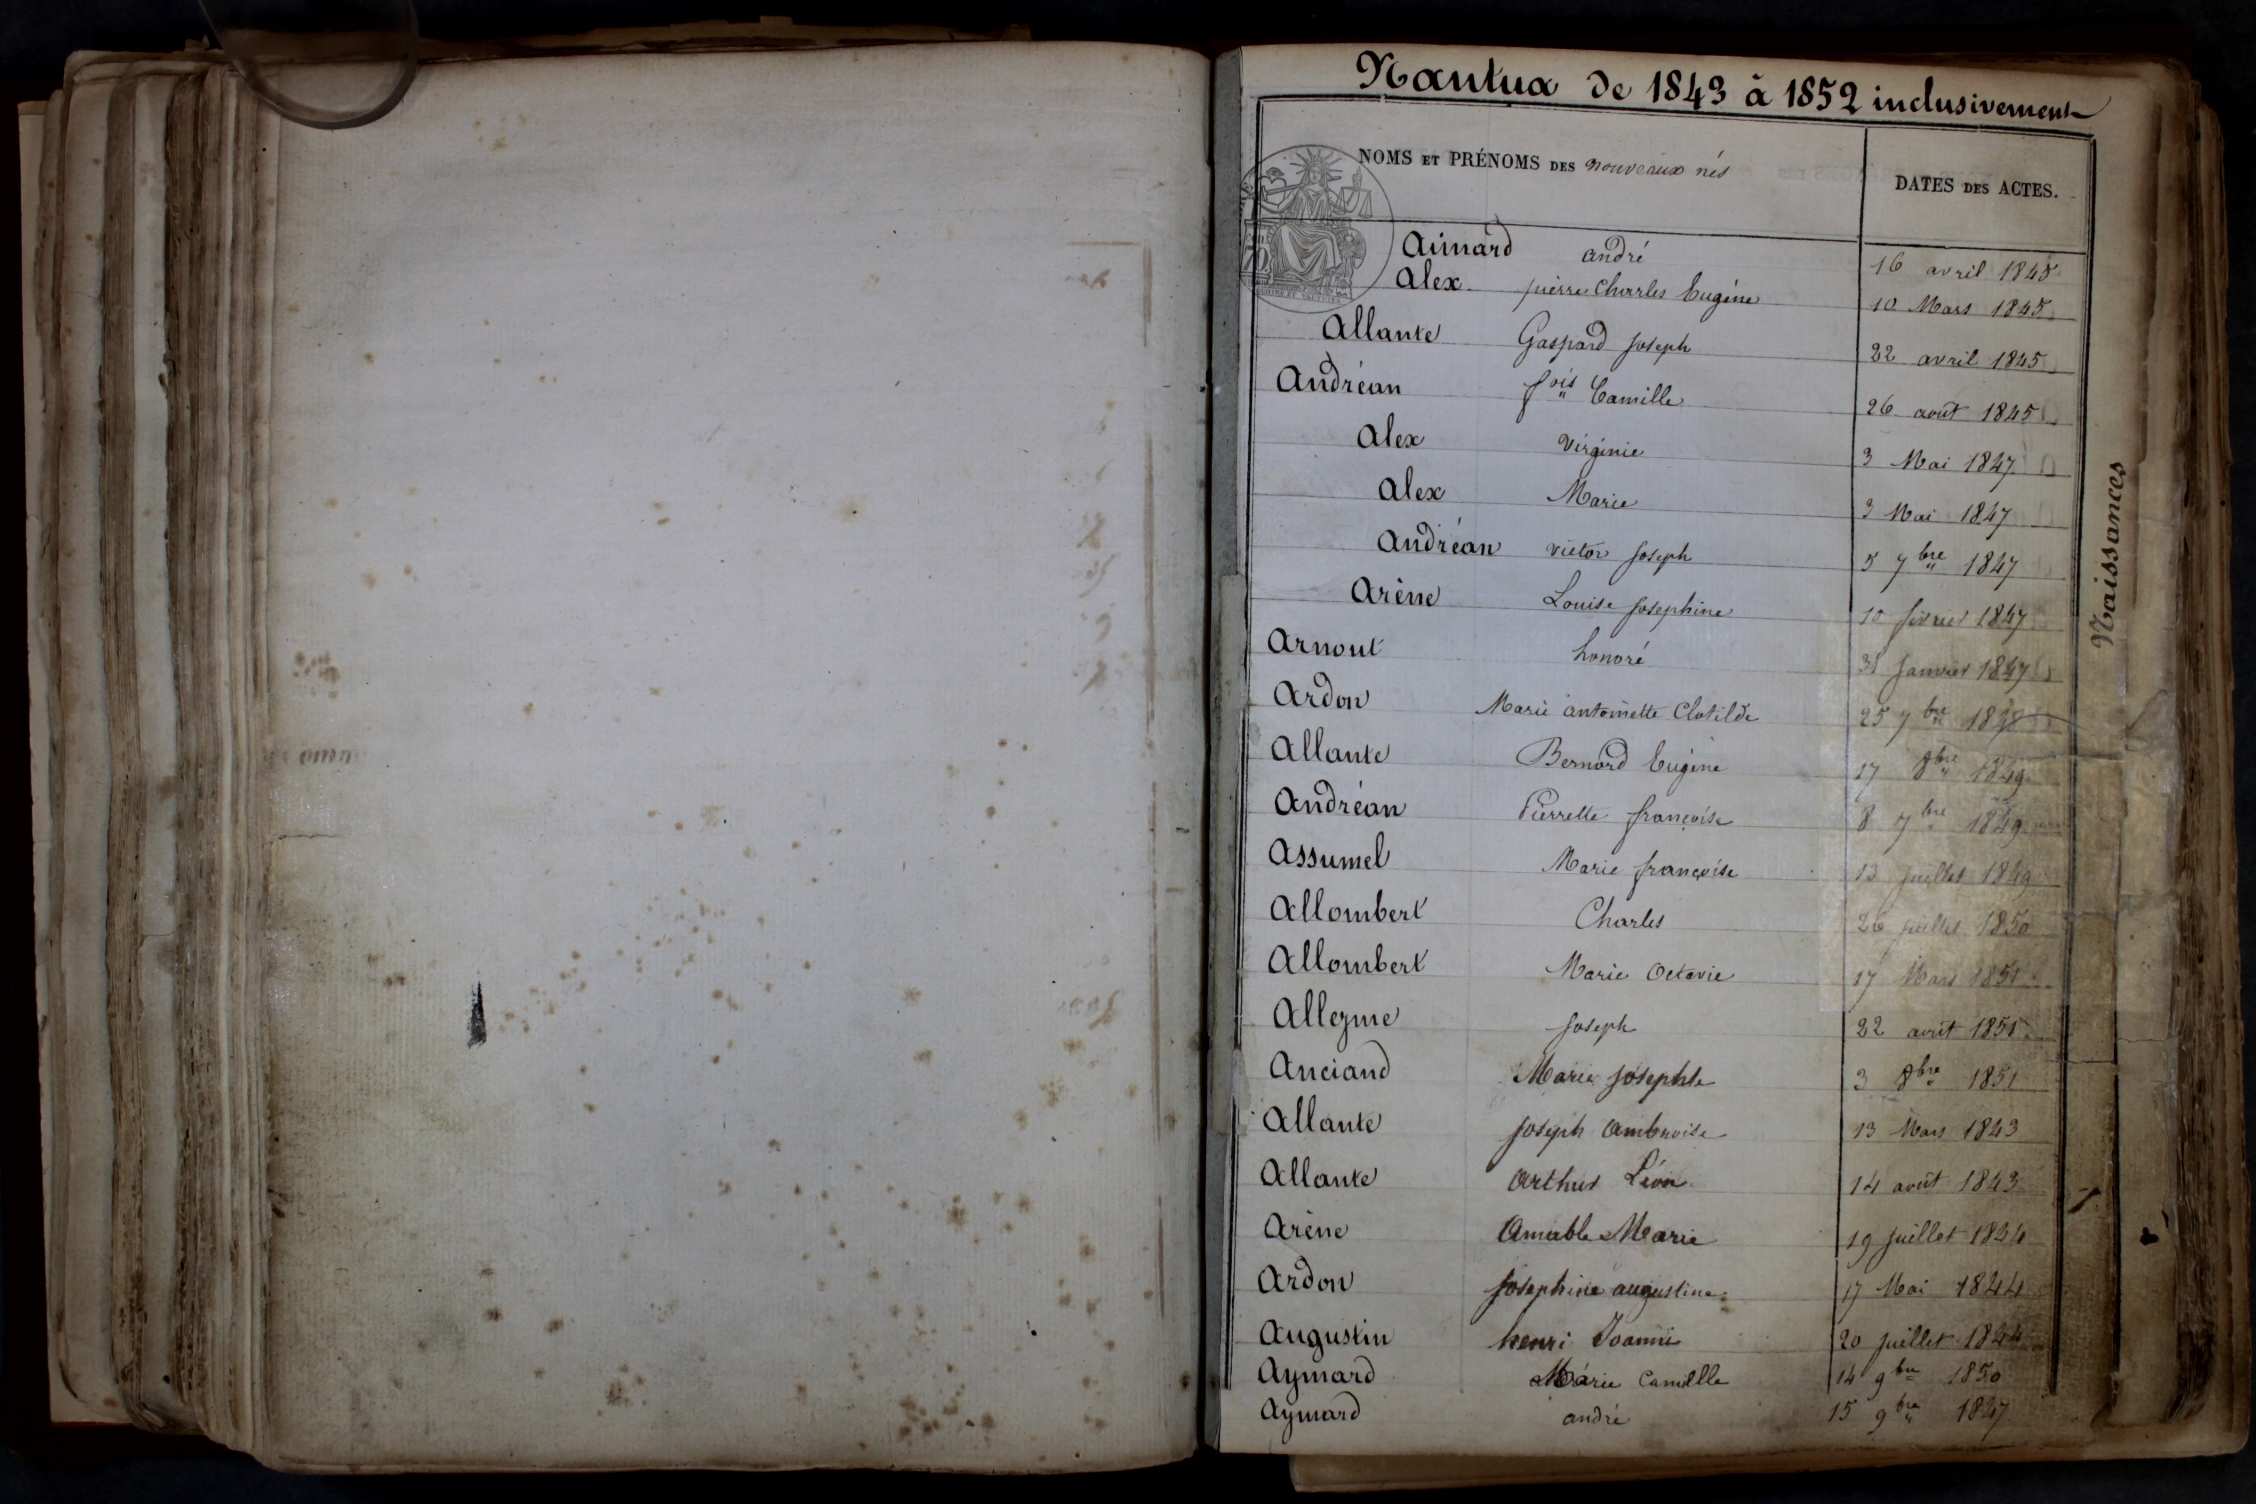 Nantua de 1843 à 1852 inclusivement
NOMS ET PRÉNOMS DES nouveaux nés DATES DES ACTES.
Aimard andré 16 avril 1845
Alex pierre Charles Eugène 10 Mars 1845
Allante Gaspard Joseph 22 avril 1845
Andréan fois Camille 26 août 1845
Alex Virginie 3 Mai 1847
Alex Marie 3 Mai 1847
Andréan victor Joseph 5 7bre 1847
Arène Louise Josephine 10 février 1847
Arnout honoré 31 Janvier 1847
Ardon Marie antoinette Clotilde 25 7bre
Allante Bernard Eugène 17 8bre 1849
Andréan Pierrette françoise 8 7bre 1849
Assumel Marie françoise 13 juillet 1849
Allombert Charles 26 juillet 1850
Allombert Marie Octavie 17 Mars 1851
Allezme Joseph 22 août 1851
Anciand Marie Josephte 3 8bre 1851
Allante Joseph Ambroise 13 Mars 1843
Allante Arthur Léon 14 août 1843
Arène Amable Marie 19 juillet 1844
Ardon Josephine augustine 17 Mai 1844
Augustin henri Joanni 20 juillet 1844
Aymard Marie Camille 14 9bre 1850
Aymard andré 15 9bre 1847
Naissances